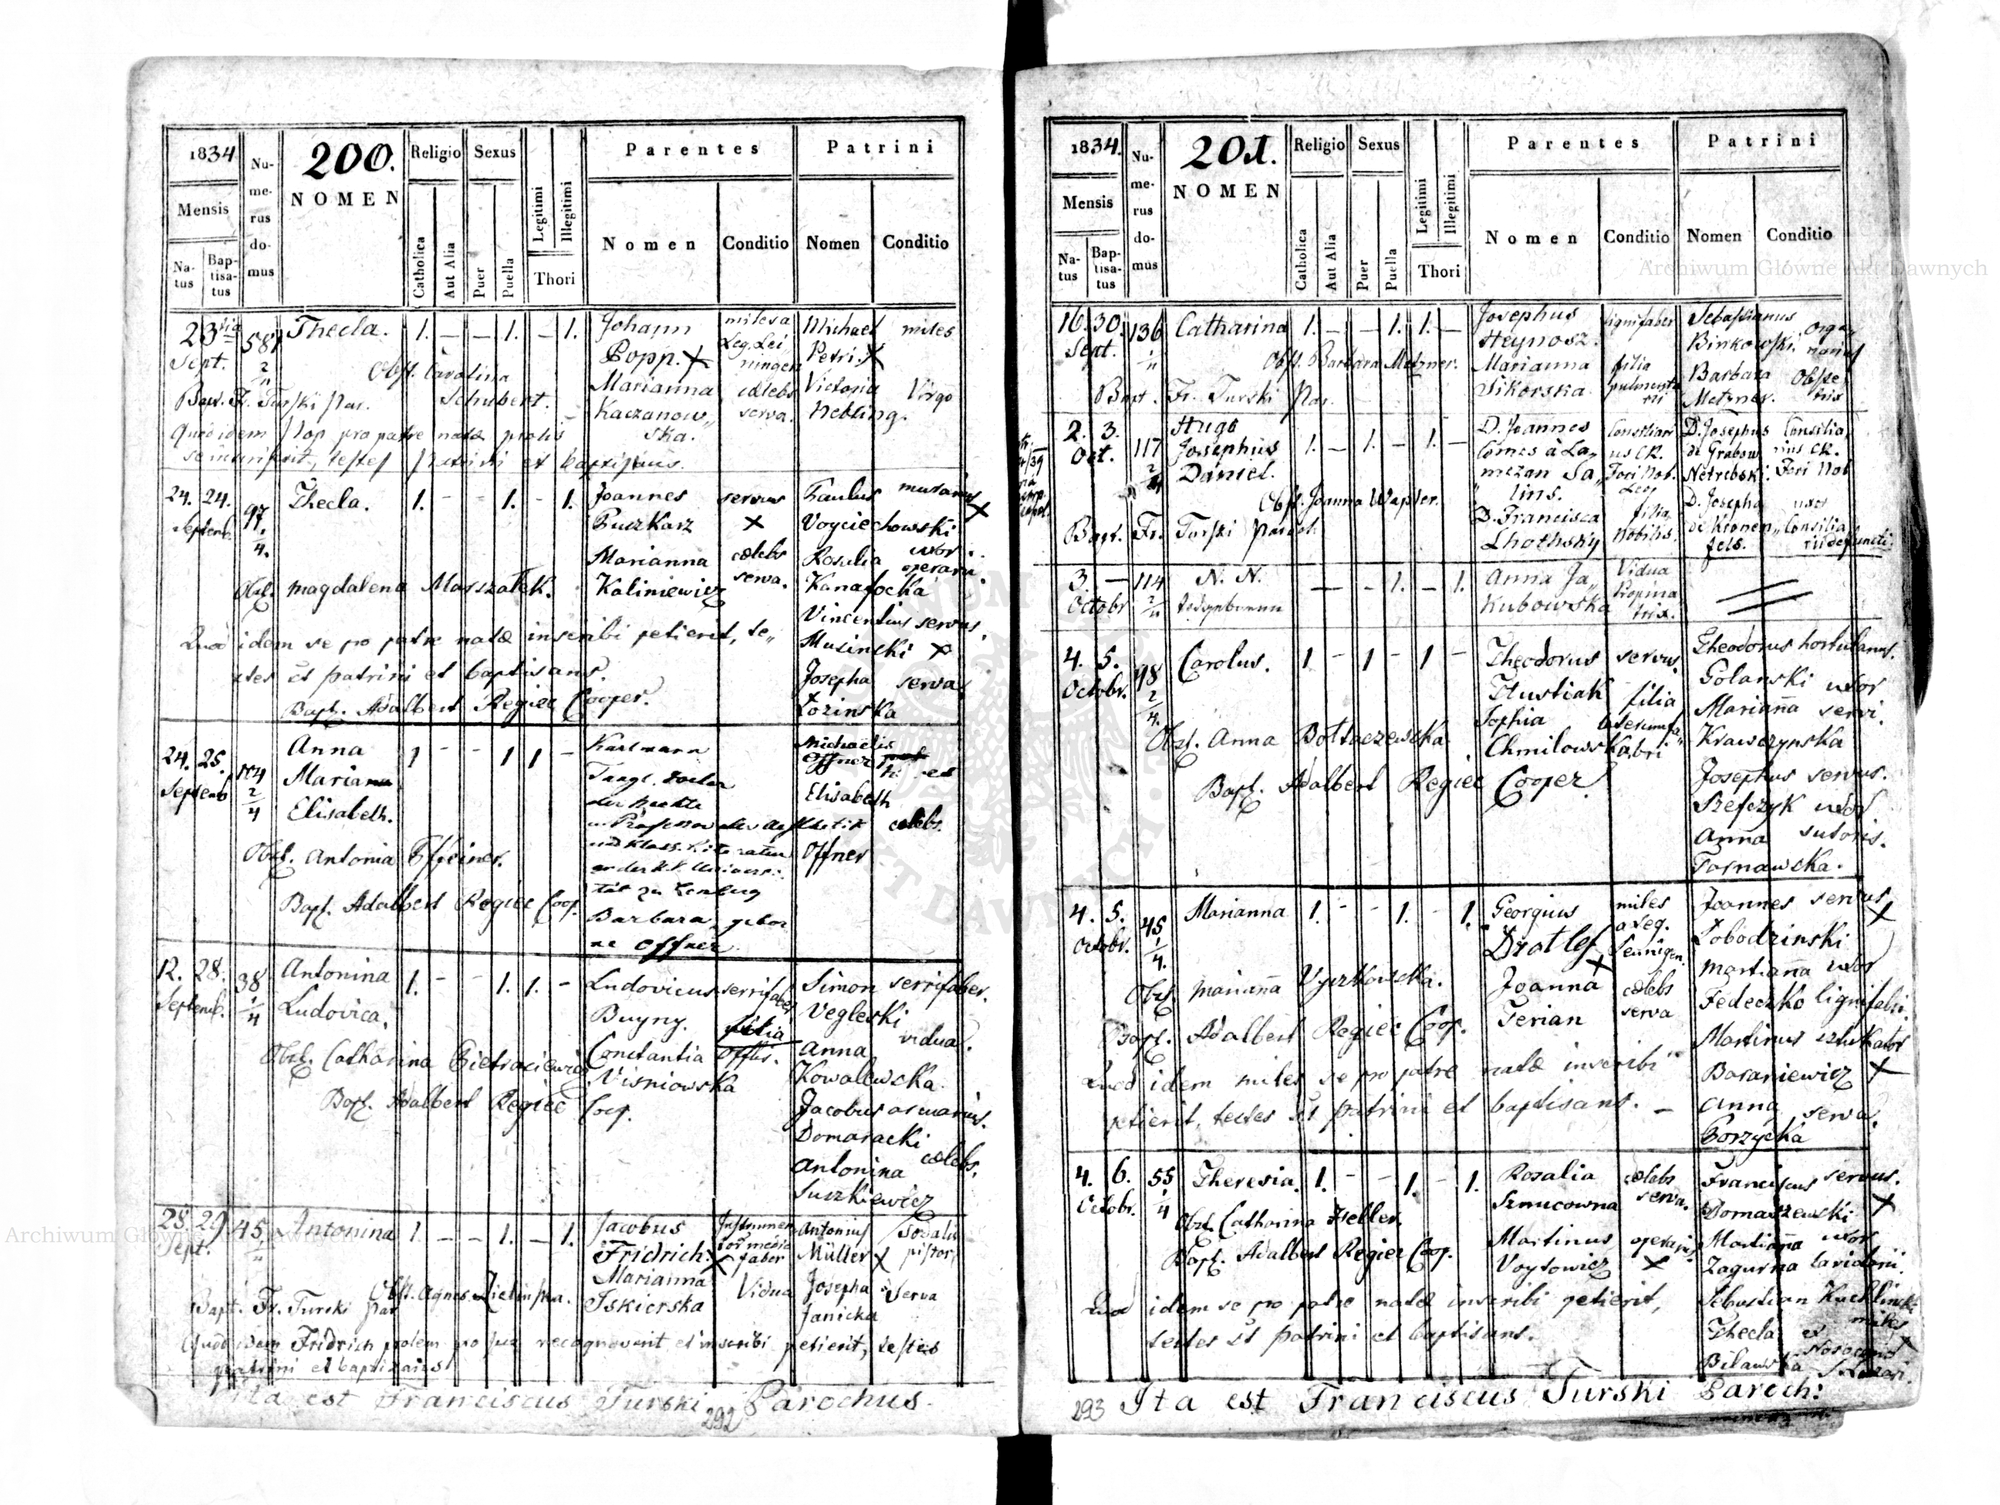 1834
Numerus domus
200.
NOMEN
Religio
Sexus
Legitimi
Illegitimi
Thori
Parentes
Patrini
Mensis
Natus
Baptisatus
Catholica
Aut Alia
Puer
Puella
Nomen
Conditio
Nomen
Conditio
23
Sept.
581
2/4
Thecla.
1. — — 1. — 1.
Johann
Popp. X
miles a
Leg. Lei
ningen
Michael
Petri. X
miles
Obst. Carolina
Schubert.
Marianna
Kaczanow„
ska.
cœlebs
serva.
Victoria
Nebling.
Virgo
Bapt. F. Turski Par.
Quod idem Pop pro patre natæ prolis
testes patrini et baptisans.
24. 24.
Septemb.
97.
4.
Thecla.
1. - - 1. - 1.
Joannes
Puczkarz
servus
X
Paulus
Woyciechowski
murarius
X
Marianna
Kaliniewicz
cœlebs
serva.
Rosalia
Kanafocka
uxor
operarii.
Obst. Magdalena Marszałek.
Vincentius servus.
Musinski X
Quod idem se pro patre natæ inscribi petierit, te„
stes st patrini et baptisans.
Josepha serva
Łozinska
Bapt. Adalbert Regiec Cooper.
24. 25.
Septemb.
104
2/4
Anna
Mariana
Elisabeth.
1 - - 1 1 -
Karlmann
Tangl. Doctor
der Rechte
u. Professor der Aesthetik
und klass. Literatur
an der k.k. Universi„
tät zu Lemberg
Barbara, gebor
ne Offner.
Michaelis
Offner
Elisabeth
cœlebs.
Offner
Obst. Antonia Effeiner.
Bapt. Adalbert Regiec Coop.
12. 28.
Septemb.
38
1/4
Antonina
Ludovica.
1. - - 1. 1. -
Ludovicus
Buyny.
serrifaber
filia
Simon serrifaber.
Wegleski
Constantia
Wisniowska
Offis.
Anna
Kowalewska
vidua.
Obst. Catharina Pietraciewicz
Bapt. Adalbert Regiec Coop.
Jacobus armarius.
Domaracki
Antonina
Suszkiewicz
cœlebs.
28. 29.
Sept.
45.
Antonina
1. — — 1. — 1.
Jacobus
Fridrich. X
Instrumen
tor. medic
faber
Antonius
Müller X
Sodalis
pistor.
Marianna
Iskierska
Vidua
Josepha
Janicka
Serva
Obst. Agnes Zielinska.
Bapt. Fr. Turski Par
Quod idem Fridrich prolem pro sua recognoverit et inscribi petierit, testes
patrini et baptizans
Ita est Franciscus Turski Parochus.
292
1834.
Numerus domus
201.
NOMEN
Religio
Sexus
Legitimi
Illegitimi
Thori
Parentes
Patrini
Mensis
Natus
Baptisatus
Catholica
Aut Alia
Puer
Puella
Nomen
Conditio
Nomen
Conditio
16. 30.
Sept.
136
Catharina
1. — — 1. 1. —
Josephus
Heynosz.
lignifaber
Sebastianus
Binkowski.
Orga„
narius
Obst. Barbara Metzner.
Marianna
Sikorska.
filia
Barbara
Metzner.
Obste
trix
Bapt. Fr. Turski Par.
2. 3.
Oct.
117
Hugo
Josephus
Daniel.
1. — 1. — 1. —
D. Joannes
Comes à La„
mezan Sa„
lins.
Consiliari
us CR.
Fori Nob.
Leop
D. Josephus
de Grabow.
Netrebski.
Consilia„
rius CR.
Fori Nob
Obst. Joanna Wapler.
D. Francisca
Lhothsky
filia
Nobilis.
D. Josepha
de Kronen„
fels.
uxor
Consilia„
rii defuncti.
Bapt. Fr. Turski Paroch.
3. —
Octobr
114
N. N.
— — 1. — 1.
Anna Ja„
kubowska
Vidua
Propina
trix.
4. 5.
Octobr.
98
2/4.
Carolus.
1 - 1 - 1 -
Theodorus
Hustiak
servus.
Theodorus hortulanus.
Golanski
Sophia
Chmilowska
filia
Marianna
Krawczynska
uxor
servi.
Obst. Anna Boltaczewska
Bapt. Adalbert Regiec Cooper
Josephus servus.
Szefczyk
Anna
Tarnawska.
uxor
sutoris.
4. 5.
Octobr.
45.
1/4.
Marianna
1. - - 1. - 1.
Georgius
Dratlef
X
miles
a Leg.
Leiningen.
Joannes servus
X
Łobodzinski
Joanna
Terian
cœlebs
serva
Marianna uxor
Fedeczko lignifabri.
Obst. Marianna Wyszkowska.
Bapt. Adalbert Regiec Coop.
Martinus sztukator
Baraniewicz X
Quod idem miles se pro patre natæ inscribi
petierit, testes st patrini et baptisans. —
Anna serva.
Gorzycka
4. 6.
Octobr.
55
1/4
Theresia.
1. - - 1. - 1.
Rosalia
Szmucowna
cœlebs
serva.
Franciscus servus.
Domaszewski X
Obst. Catharina Heller.
Bapt. Adalbert Regiec Coop.
Martinus
Woytowicz
operarius
X
Marianna uxor
Zagurna lapidarii.
Quod idem se pro patre natæ inscribi petierit,
testes st patrini et baptisans.
Sebastian Kuchlinski
Thecla
Bilawska
Ita est Franciscus Turski Paroch:
293
Archiwum Główne Akt Dawnych
Archiwum Główne Akt Dawnych